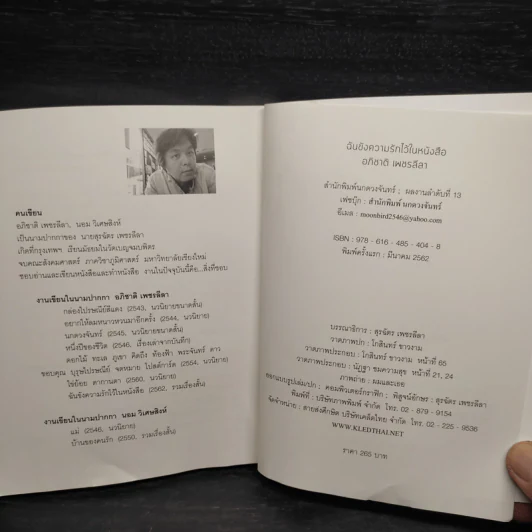 คนเขียน
อภิชาติ เพชรลีลา, นอม วิเศษสิงห์
เป็นนามปากกาของ นายสุรฉัตร เพชรลีลา
เกิดที่กรุงเทพฯ เรียนมัธยมในวัดเบญจมบพิตร
จบคณะสังคมศาสตร์ ภาควิชาภูมิศาสตร์ มหาวิทยาลัยเชียงใหม่
ชอบอ่านและเขียนหนังสือและทำหนังสือ งานในปัจจุบันนี้คือ...สิ่งที่ชอบ
งานเขียนในนามปากกา อภิชาติ เพชรลีลา
กล่องไปรษณีย์สีแดง (2543, นวนิยายขนาดสั้น)
อยากให้ลมหนาวหวนมาอีกครั้ง (2544, นวนิยาย)
นกดวงจันทร์ (2545, นวนิยายขนาดสั้น)
หนึ่งปีของชีวิต (2546, เรื่องเล่าจากบันทึก)
ดอกไม้ ทะเล ภูเขา คิดถึง ท้องฟ้า พระจันทร์ ดาว
ขอบคุณ บุรุษไปรษณีย์ จดหมาย โปสต์การ์ด (2554, นวนิยาย)
ไข่ย้อย คาถานดา (2560, นวนิยาย)
ฉันขังความรักไว้ในหนังสือ (2562, รวมเรื่องสั้น)
งานเขียนในนามปากกา นอม วิเศษสิงห์
แม่ (2546, นวนิยาย)
บ้านของคนรัก (2550, รวมเรื่องสั้น)
ฉันขังความรักไว้ในหนังสือ
อภิชาติ เพชรลีลา
สำนักพิมพ์นกดวงจันทร์ ; ผลงานลำดับที่ 13
เฟซบุ๊ก : สำนักพิมพ์ นกดวงจันทร์
อีเมล : moonbird2546@yahoo.com
ISBN : 978 - 616 - 485 - 404 - 8
พิมพ์ครั้งแรก : มีนาคม 2562
บรรณาธิการ : สุรฉัตร เพชรลีลา
วาดภาพปก : โกสินทร์ ขาวงาม
วาดภาพประกอบ : โกสินทร์ ขาวงาม หน้าที่ 65
วาดภาพประกอบ : นัฏฐา ชมความสุข หน้าที่ 21, 24
ภาพถ่าย : ผมและเธอ
ออกแบบรูปเล่ม/ปก ; คอมพิวเตอร์กราฟิก ; พิสูจน์อักษร : สุรฉัตร เพชรลีลา
พิมพ์ที่ : บริษัทภาพพิมพ์ จำกัด โทร. 02 - 879 - 9154
จัดจำหน่าย : สายส่งศึกษิต บริษัทเคล็ดไทย จำกัด โทร. 02 - 225 - 9536
WWW.KLEDTHAI.NET
ราคา 265 บาท